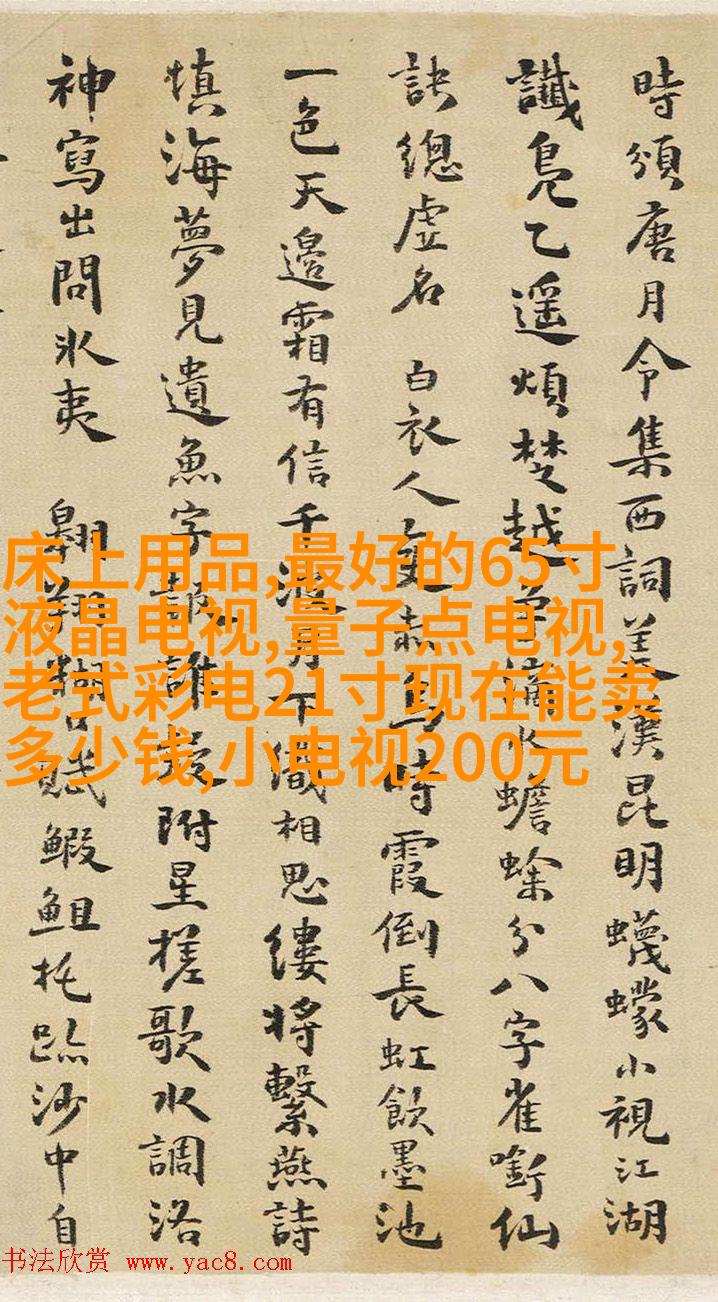 時頒唐月令集西詞美漢昆明蠛蠓小視江湖
讖鳧乙遥煩楚越 蟾蜍分八字雀銜仙
訣總虚名 白衣人 烏時霞倒長虹飲墨池
一色天邊霜有信千波月下織相思縷將繫燕詩
填海夢見遺魚字報誰爰附星槎歌水調洛
神寫出問氷夷 翱翔糊口賦鰕䱉托跡沙中自
床上用品,最好的65寸
液晶电视,量子点电视,
老式彩电21寸现在能卖
多少钱,小电视200元
书法欣赏 www.yac8.com